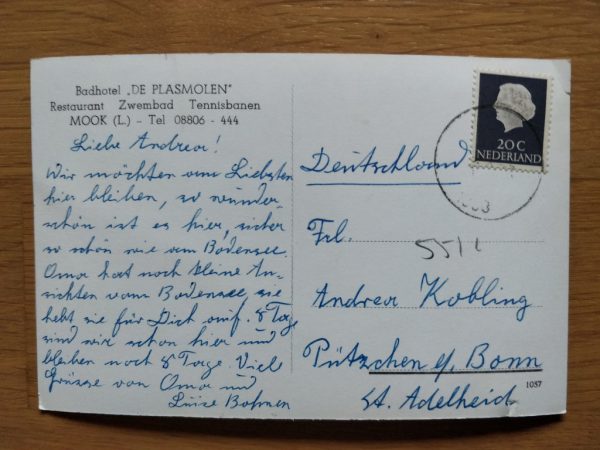 Badhotel „DE PLASMOLEN"
Restaurant Zwembad Tennisbanen
MOOK (L.) - Tel 08806 - 444
Liebe Andrea!
Wir möchten am Liebsten
hier bleiben, so wunder-
schön ist es hier, sicher
so schön wie am Bodensee.
Oma hat noch kleine An-
sichten vom Bodensee, sie
hebt sie für Dich auf. 8 Tage
sind wir schon hier und
bleiben noch 8 Tage. Viel
Grüsse von Oma und
Luise
20 C
NEDERLAND
Deutschland
Frl.
Andrea Kobling
Pützchen b/ Bonn
St. Adelheid
1057